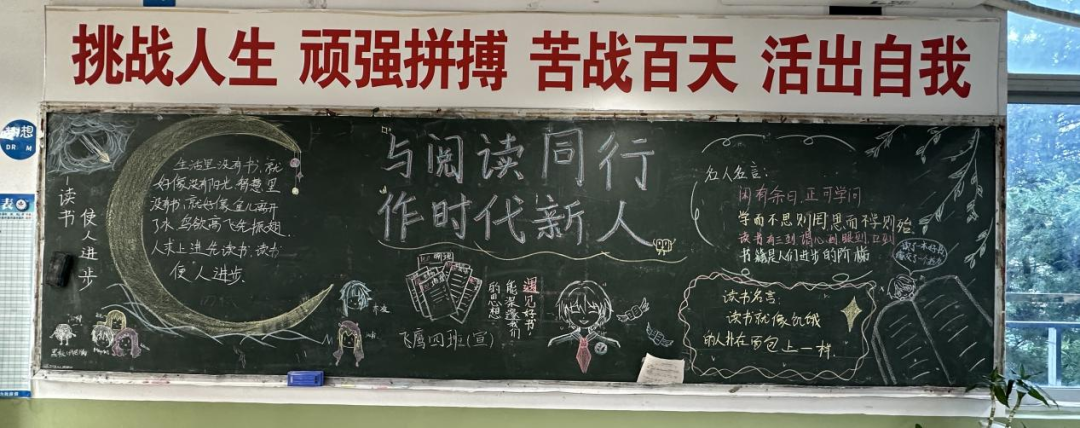 挑战人生 顽强拼搏 苦战百天 活出自我
想
表
读书
使人进步
生活里没有书,就
好像没有阳光,智慧里
没有书,就好像鱼儿离开
了水,鸟欲高飞先振翅,
人求上进先读书,读书
使人进步.
与阅读同行
作时代新人
飞鹰四班(宣)
遇见好书
的思想
名人名言:
闲有余日,正可学问
学而不思则罔,思而不学则殆.
读书有三到,谓心到,眼到,口到
书籍是人们进步的阶梯
读书名言:
读书就像饥饿
的人扑在面包上一样.